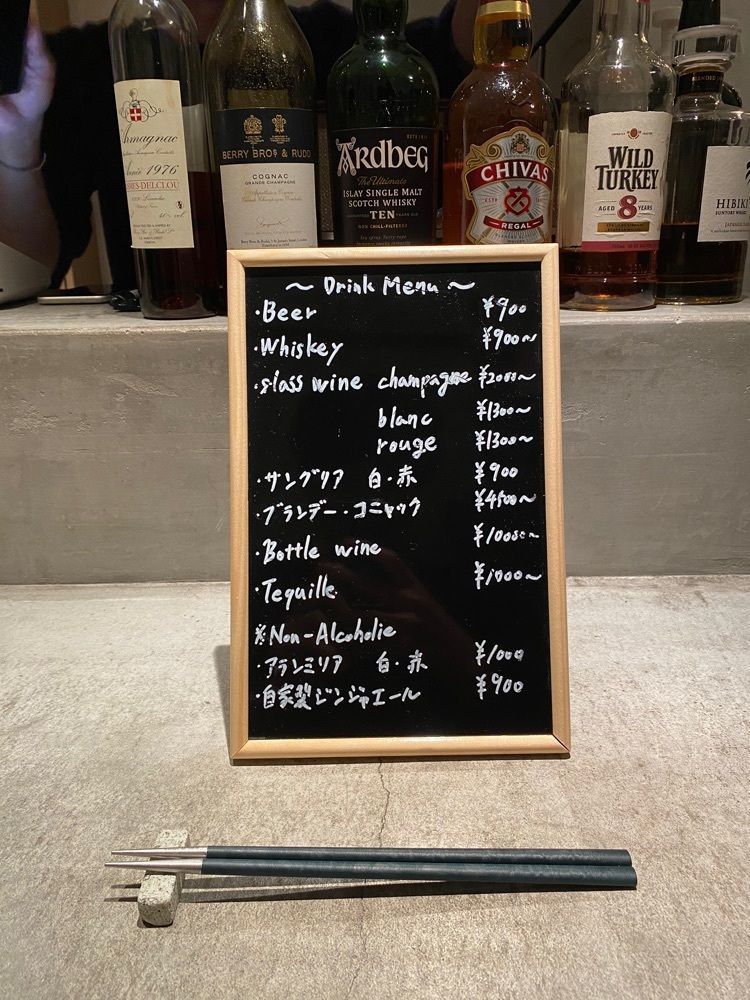 Armagnac
1976
40%
BERRY BROS & RUDD
COGNAC
GRANDE CHAMPAGNE
ARDBEG
The Ultimate
ISLAY SINGLE MALT
SCOTCH WHISKY
TEN YEARS OLD
NON CHILL-FILTERED
CHIVAS
REGAL
WILD
TURKEY
AGED 8 YEARS
BLENDED
HIBIKI
SUNTORY WHISKY
～ Drink Menu ～
・Beer ¥900
・Whiskey ¥900～
・glass wine champagne ¥2000～
blanc ¥1300～
rouge ¥1300～
・サングリア 白・赤 ¥900
・ブランデー・コニャック ¥4500～
・Bottle wine ¥10000～
・Tequille ¥1000～
※Non-Alcoholic
・アランミリア 白・赤 ¥1000
・自家製ジンジャエール ¥900